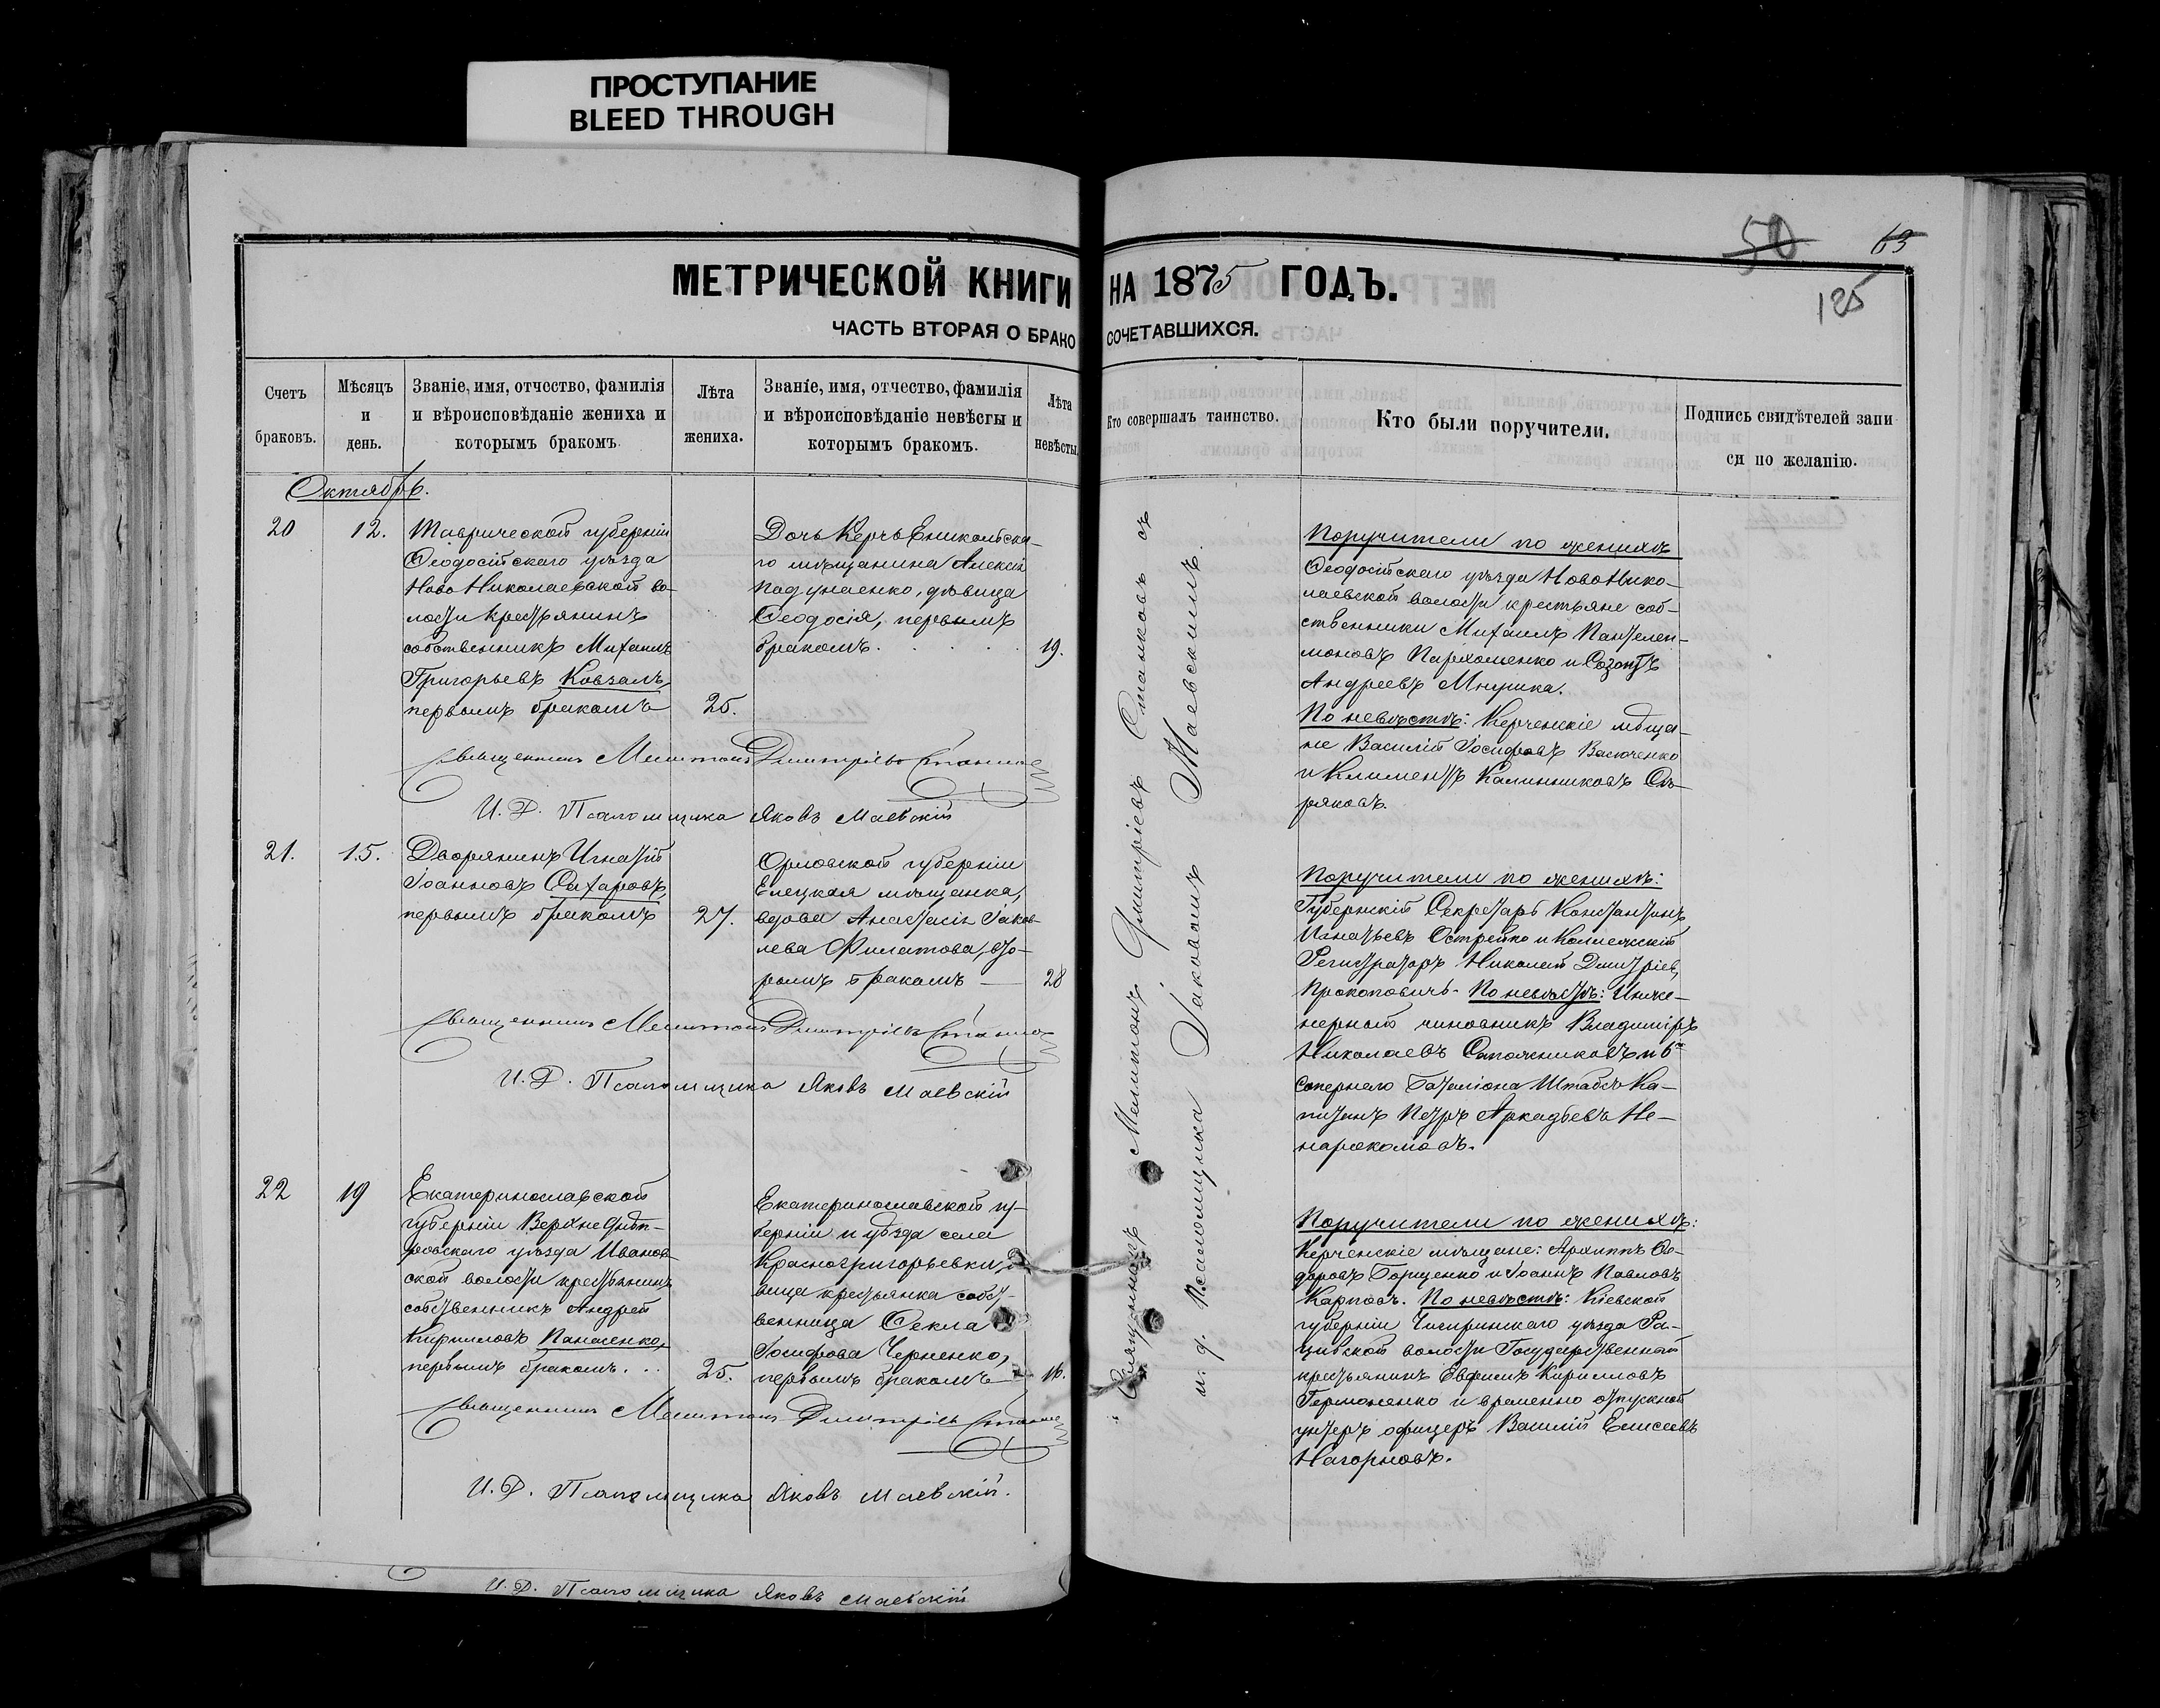 ПРОСТУПАНИЕ
BLEED THROUGH
50
63
125
МЕТРИЧЕСКОЙ КНИГИ НА 1875 ГОДЪ.
ЧАСТЬ ВТОРАЯ О БРАКОСОЧЕТАВШИХСЯ.
Счетъ браковъ.
Мѣсяцъ и день.
Званіе, имя, отчество, фамилія и вѣроисповѣданіе жениха и которымъ бракомъ
Лѣта жениха.
Званіе, имя, отчество, фамилія и вѣроисповѣданіе невѣсты и которымъ бракомъ.
Лѣта невѣсты.
Кто совершалъ таинство.
Кто были поручители.
Подпись свидѣтелей записи по желанію.
Октябрь.
20
12.
Таврической губерніи
Ѳеодосійскаго уѣзда
Ново Николаевской во-
лости крестьянинъ
собственникъ Михаилъ
Григорьевъ Ковзалъ,
первымъ бракомъ
25.
Дочь Керчь Еникольска-
го мѣщанина Алексія
Падунаенко, дѣвица
Ѳеодосія, первымъ
бракомъ.
19.
Поручители по женихѣ
Ѳеодосійскаго уѣзда НовоНико-
лаевской волости крестьяне соб-
ственники Михаилъ Пантелеи-
моновъ Пархоменко и Созонтъ
Андреевъ
По невѣстѣ: Керченскіе мѣща-
не Василій Іосифовъ Васюченко
и Климентъ Калинниковъ Ѳи-
ряковъ.
Священникъ Мелитонъ Димитріевъ Станковъ
И. Д. Псаломщика Яковъ Маевскій
21.
15.
Дворянинъ Игнатій
Іоанновъ Сахаровъ,
первымъ бракомъ
27.
Орловской губерніи
Елецкая мѣщанка,
вдова Анастасія Іаков-
лева Филатова, вто-
рымъ бракомъ —
28
Поручители по женихѣ:
Губернскій Секретарь Константинъ
Игнатьевъ Острейко и Коллежскій
Регистраторъ Николай Димитріев,
Прокоповичъ. По невѣстѣ: Инже-
нерный чиновникъ Владиміръ
Николаевъ Сапожниковъ и 6го
сапернаго баталіона Штабсъ Ка-
питанъ Петръ Аркадьевъ Не-
нарокомовъ.
Священникъ Мелитонъ Димитріевъ Станковъ
И. Д. Псаломщика Яковъ Маевскій
22
19
Екатеринославской
губерніи Верхнеднѣп-
ровскаго уѣзда Иванов-
ской волости крестьянинъ
собственникъ Андрей
Кирилловъ Панасенко,
первымъ бракомъ...
25.
Екатеринославской гу-
берніи и уѣзда села
Красногригорьевки, дѣ-
вица крестьянка собст-
венница Ѳекла
Іосифова Черненко,
первымъ бракомъ
16.
Поручители по женихѣ:
Керченскіе мѣщане: Архиппъ Ѳе-
доровъ Борщенко и Іоаннъ Павловъ
Карповъ. По невѣстѣ: Кіевской
губерніи Чигиринскаго уѣзда Ра-
цивской волости Государственный
крестьянинъ Евфимъ Кирилловъ
и временно отпускной
унтеръ офицеръ Василій Елисеевъ
Нагорновъ.
Священникъ Мелитонъ Димитріевъ Станковъ
И. Д. Псаломщика Яковъ Маевскій.
Священникъ Мелитонъ Димитріевъ Станковъ съ
и. д. Псаломщика Іаковомъ Маевскимъ.
И. Д. Псаломщика Яковъ Маевскій